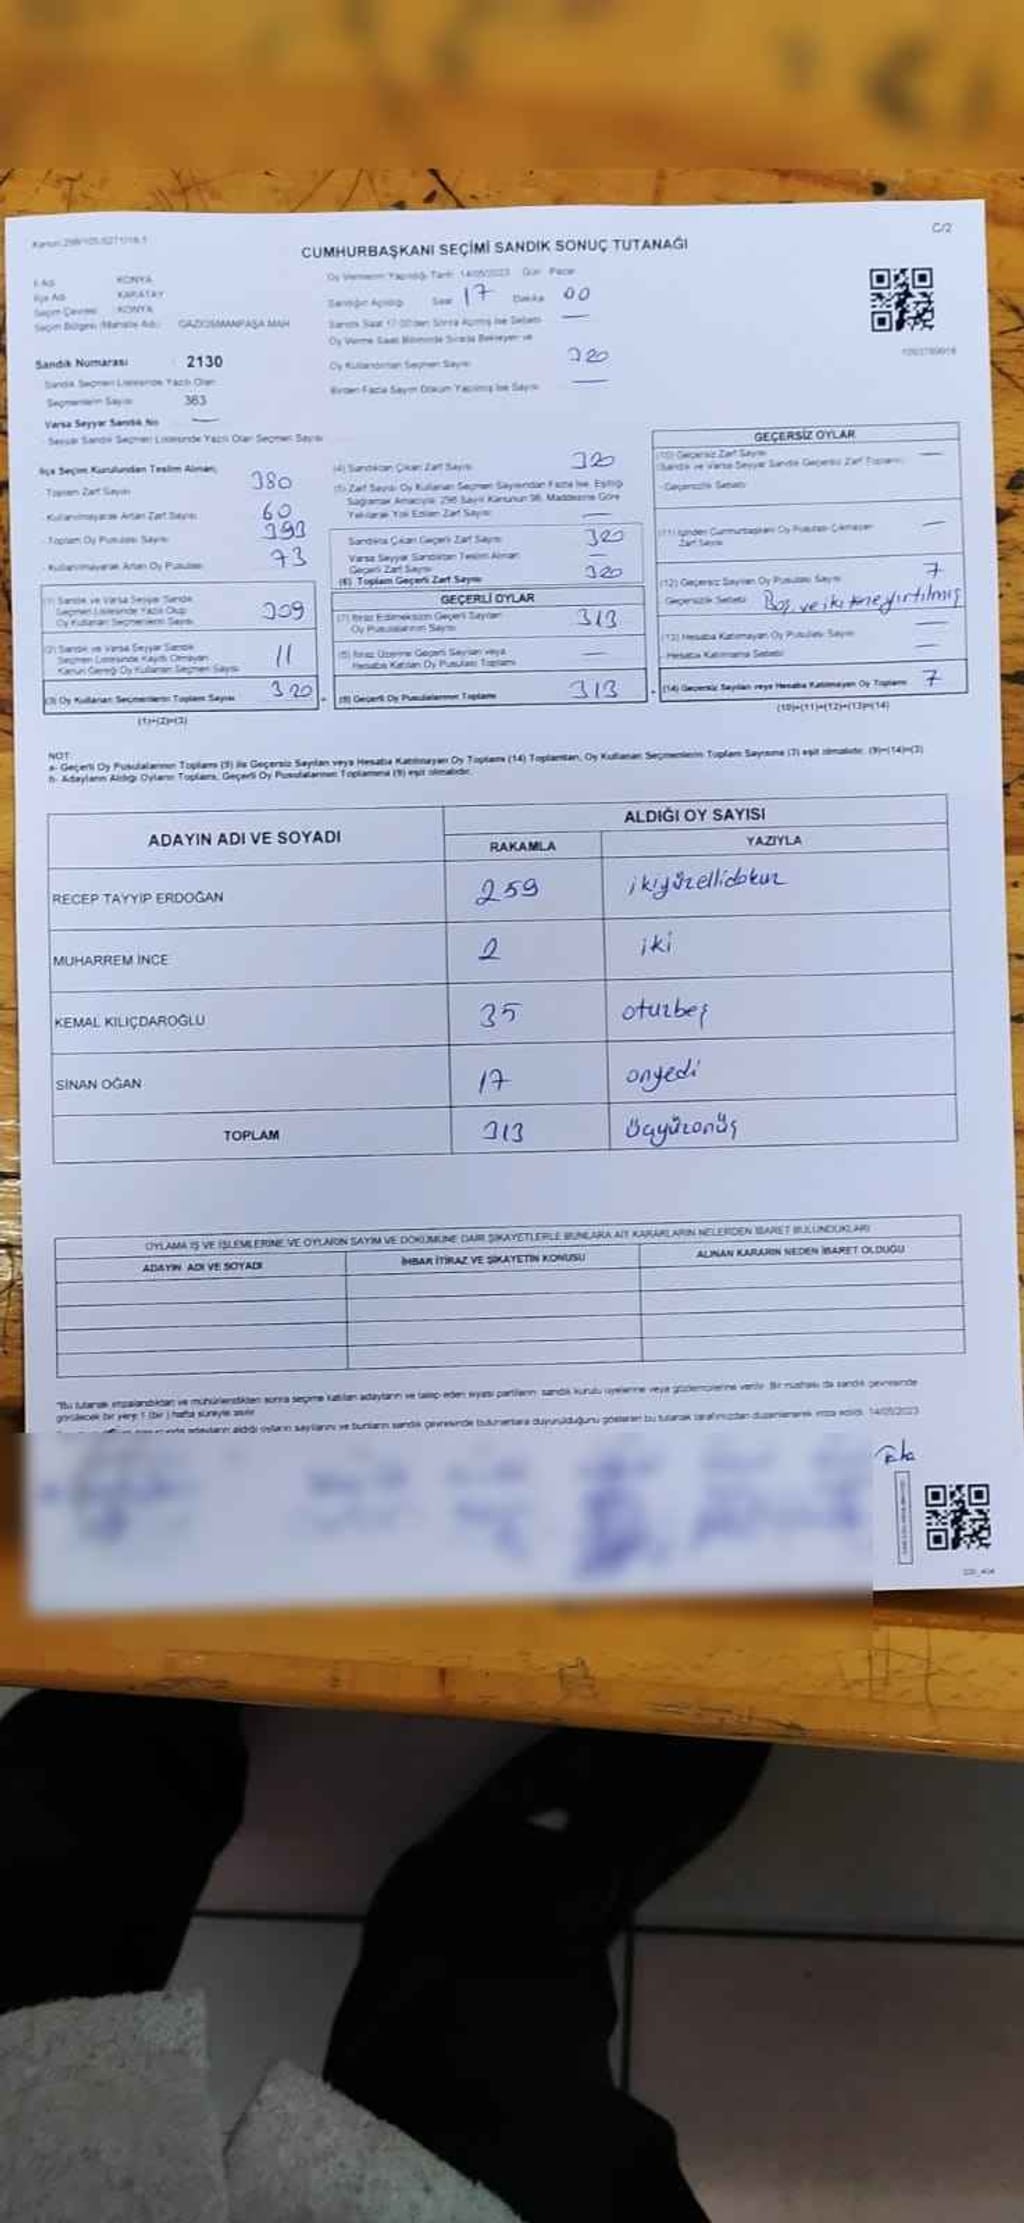 C/2
CUMHURBAŞKANI SEÇİMİ SANDIK SONUÇ TUTANAĞI
İl Adı KONYA
İlçe Adı KARATAY
Seçim Çevresi KONYA
Seçim Bölgesi (Mahalle Adı) GAZİOSMANPAŞA MAH
Oy Vermenin Yapıldığı Tarih 14/05/2023 Gün Pazar
Sandığın Açıldığı Saat 17 Dakika 00
Sandık Saat 17:00'den Sonra Açılmış İse Sebebi —
Oy Verme Saati Bitiminde Sırada Bekleyen ve
Oy Kullandırılan Seçmen Sayısı 320
Birden Fazla Sayım Döküm Yapılmış İse Sayısı —
Sandık Numarası : 2130
Sandık Seçmen Listesinde Yazılı Olan
Seçmenlerin Sayısı 363
Varsa Seyyar Sandık No —
Seyyar Sandık Seçmen Listesinde Yazılı Olan Seçmen Sayısı
İlçe Seçim Kurulundan Teslim Alınan;
Toplam Zarf Sayısı 380
- Kullanılmayarak Artan Zarf Sayısı 60
- Toplam Oy Pusulası Sayısı 393
- Kullanılmayarak Artan Oy Pusulası 73
(1) Sandık ve Varsa Seyyar Sandık
Seçmen Listesinde Yazılı Olup
Oy Kullanan Seçmenlerin Sayısı 309
(2) Sandık ve Varsa Seyyar Sandık
Seçmen Listesinde Kayıtlı Olmayan
Kanun Gereği Oy Kullanan Seçmen Sayısı 11
(3) Oy Kullanan Seçmenlerin Toplam Sayısı 320
(1)+(2)=(3)
(4) Sandıktan Çıkan Zarf Sayısı 320
(5) Zarf Sayısı Oy Kullanan Seçmen Sayısından Fazla İse, Eşitliği
Sağlamak Amacıyla 298 Sayılı Kanunun 98. Maddesine Göre
Yakılarak Yok Edilen Zarf Sayısı —
Sandıkta Çıkan Geçerli Zarf Sayısı 320
Varsa Seyyar Sandıktan Teslim Alınan
Geçerli Zarf Sayısı —
(6) Toplam Geçerli Zarf Sayısı 320
GEÇERLİ OYLAR
(7) İtiraz Edilmeksizin Geçerli Sayılan
Oy Pusulalarının Sayısı 313
(8) İtiraz Üzerine Geçerli Sayılan veya
Hesaba Katılan Oy Pusulası Toplamı —
(9) Geçerli Oy Pusulalarının Toplamı 313
GEÇERSİZ OYLAR
(10) Geçersiz Zarf Sayısı
(Sandık ve Varsa Seyyar Sandık Geçersiz Zarf Toplamı) —
- Geçersizlik Sebebi
(11) İçinden Cumhurbaşkanı Oy Pusulası Çıkmayan
Zarf Sayısı —
(12) Geçersiz Sayılan Oy Pusulası Sayısı 7
Geçersizlik Sebebi Boş ve iki tane yırtılmış
(13) Hesaba Katılmayan Oy Pusulası Sayısı —
- Hesaba Katılmama Sebebi —
(14) Geçersiz Sayılan veya Hesaba Katılmayan Oy Toplamı 7
(10)+(11)+(12)+(13)=(14)
NOT:
a- Geçerli Oy Pusulalarının Toplamı (9) ile Geçersiz Sayılan veya Hesaba Katılmayan Oy Toplamı (14) Toplamları, Oy Kullanan Seçmenlerin Toplam Sayısına (3) eşit olmalıdır. (9)+(14)=(3)
b- Adayların Aldığı Oyların Toplamı, Geçerli Oy Pusulalarının Toplamına (9) eşit olmalıdır.
ADAYIN ADI VE SOYADI
ALDIĞI OY SAYISI
RAKAMLA YAZIYLA
RECEP TAYYİP ERDOĞAN 259 ikiyüzellidokuz
MUHARREM İNCE 2 iki
KEMAL KILIÇDAROĞLU 35 oturbeş
SİNAN OĞAN 17 onyedi
TOPLAM 313 üçyüzonüş
OYLAMA İŞ VE İŞLEMLERİNE VE OYLARIN SAYIM VE DÖKÜMÜNE DAİR ŞİKAYETLERLE BUNLARA AİT KARARLARIN NELERDEN İBARET BULUNDUKLARI
ADAYIN ADI VE SOYADI İHBAR İTİRAZ VE ŞİKAYETİN KONUSU ALINAN KARARIN NEDEN İBARET OLDUĞU
"Bu tutanak imzalandıktan ve mühürlendikten sonra seçime katılan adayların ve talep eden siyasi partilerin sandık kurulu üyelerine veya gözlemcilerine verilir. Bir nüshası da sandık çevresinde
görülecek bir yere 1 (bir) hafta süreyle asılır
adayların aldığı oyların sayılarını ve bunların sandık çevresinde bulunanlara duyurulduğunu gösteren bu tutanak tarafımızdan düzenlenerek imza edildi. 14/05/2023